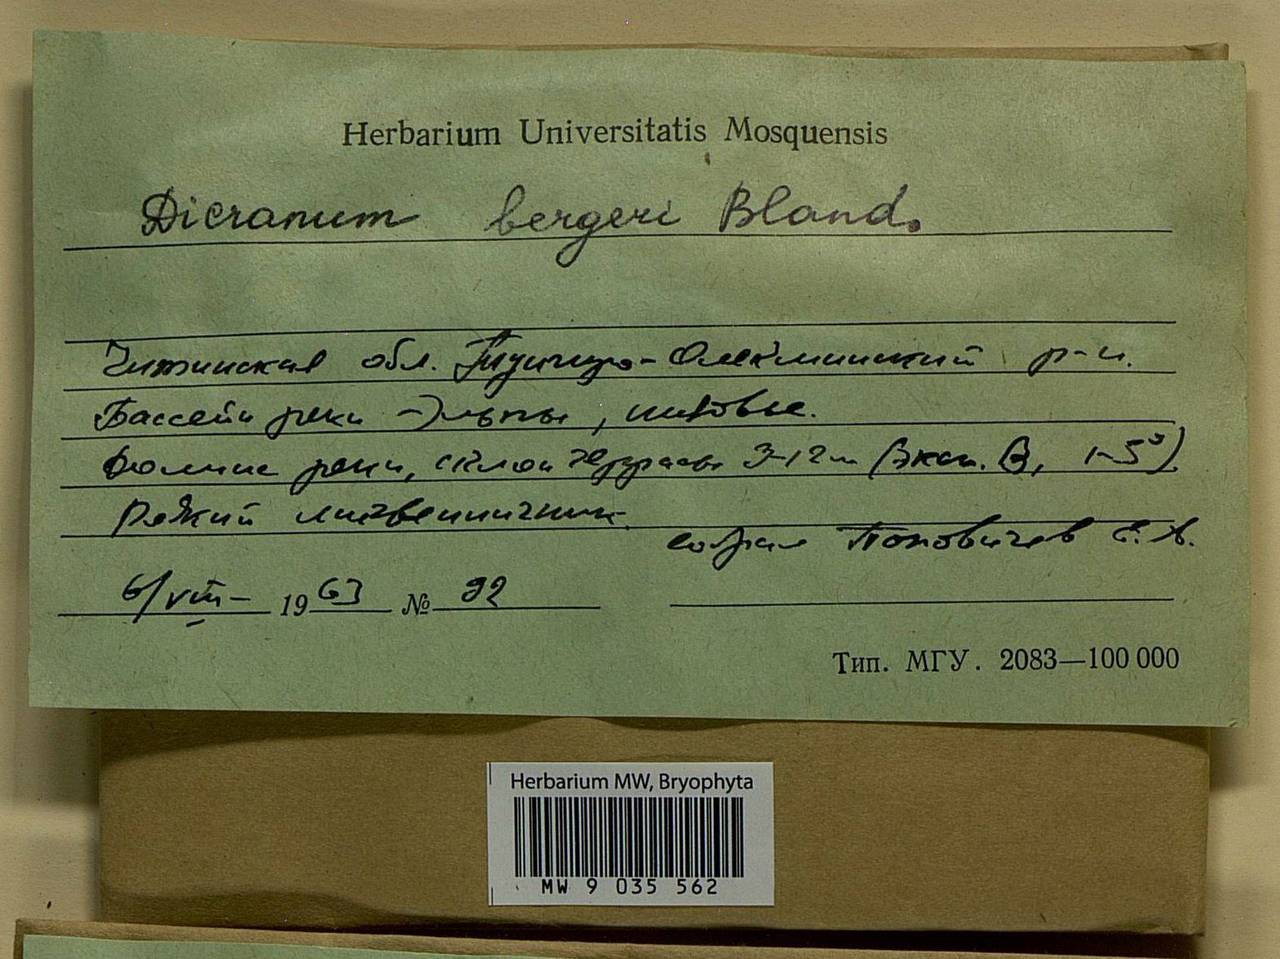 Herbarium Universitatis Mosquensis
Dicranum bergeri Bland.
Читинская обл. Тунгиро-Олекминский р-н.
Бассейн реки
долине реки, склон террасы 3-12 м (эксп. В, 1-5°).
Редкий лиственничник.
собрал Попович Е. А.
6/VIII- 1963 № 92
Тип. МГУ. 2083—100 000
Herbarium MW, Bryophyta
MW 9 035 562